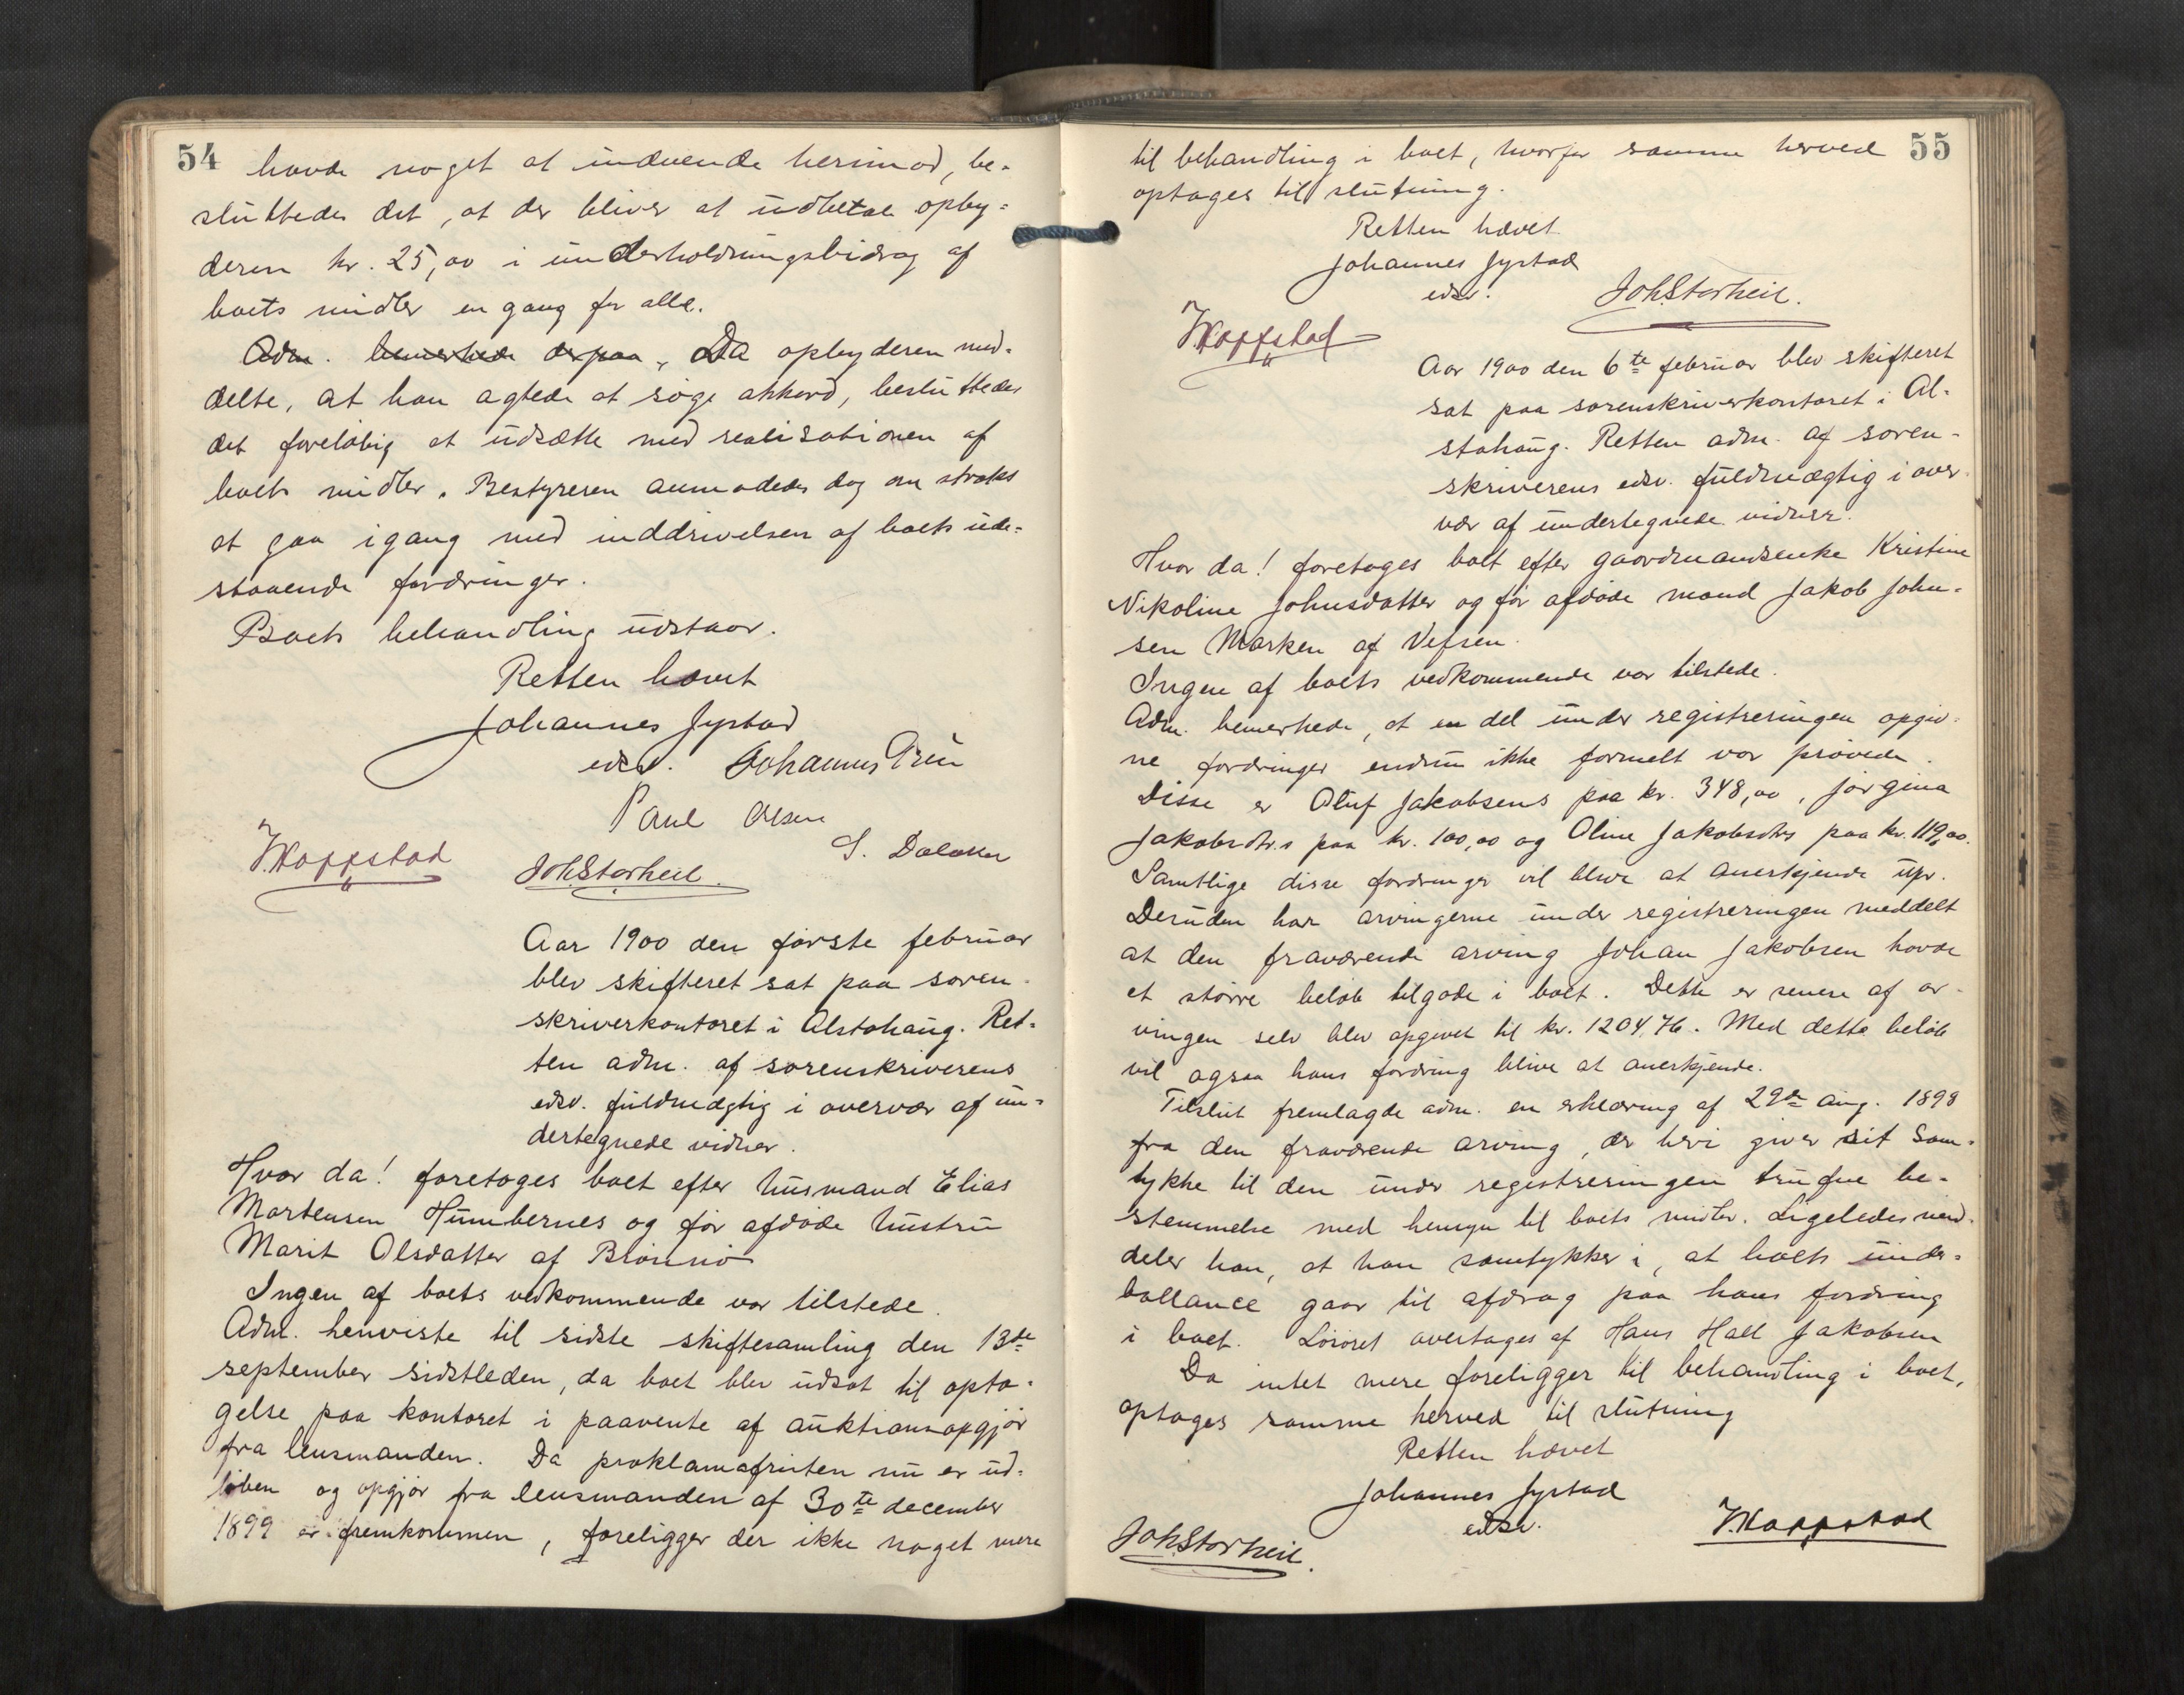 54
havde noget at indvende herimod, be-
sluttedes det, at der bliver at udbetale opby-
deren kr. 25,00 i underholdningsbidrag af
boets midler en gang for alle.
Adm. bemerkede derpaa, Da opbyderen med-
delte, at han agtede at søge akkord, besluttedes
det foreløbig at udsætte med realisationen af
boets midler. Bestyreren anmodedes dog om straks
at gaa igang med inddrivelsen af boets ude-
staaende fordringer.
Boets behandling udstaar.
Retten hævet
Johannes Jystad
edsv. Johannes
Paul Olsen
S. Dalaker
J. Kappstad JohStorheil.
Aar 1900 den første februar
blev skifteret sat paa soren-
skriverkontoret i Alstahaug. Ret-
ten adm. af sorenskriverens
edsv. fuldmægtig i overvær af un-
dertegnede vidner.
Hvor da! foretoges boet efter husmand Elias
Mortensen Humbernes og før afdøde hustru
Marit Olsdatter af Brønnø
Ingen af boets vedkommende var tilstede.
Adm. henviste til sidste skiftesamling den 13de
september sidstleden, da boet blev udsat til opta-
gelse paa kontoret i paavente af auktionsopgjør
fra lensmanden. Da proklamafristen nu er ud-
løben og opgjør fra lensmanden af 30te december
1899 er fremkommen, foreligger der ikke noget mere
55
til behandling i boet, hvorfor samme herved
optages til slutning.
Retten hævet
Johannes Jystad
edsv. JohStorheil.
J. Kappstad
Aar 1900 den 6te februar blev skifteret
sat paa sorenskriverkontoret i Al-
stahaug. Retten adm. af soren-
skriverens edsv. fuldmægtig i over-
vær af undertegnede vidner.
Hvor da! foretoges boet efter gaardmandsenke Kristine
Nikoline Johnsdatter og før afdøde mand Jakob John-
sen Marken af Vefsen.
Ingen af boets vedkommende var tilstede.
Adm. bemerkede, at en del under registreringen opgiv-
ne fordringer endnu ikke formelt var prøvede.
Disse er Oluf Jakobsens paa kr. 348,00, Jørgina
Jakobsdtr.s paa kr. 100,00 og Oline Jakobsdtrs paa kr. 119,00.
Samtlige disse fordringer vil blive at anerkjende upr.
Desuden har arvingerne under registreringen meddelt
at den fraværende arving Johan Jakobsen havde
et større beløb tilgode i boet. Dette er senere af ar-
vingen selv blev opgivet til kr. 1204,76. Med dette beløb
vil ogsaa hans fordring blive at anerkjende.
Tilslut fremlagde adm. en erklæring af 29de aug. 1898
fra den fraværende arving, der heri giver sit sam-
tykke til den under registreringen trufne be-
stemmelse med hensyn til boets midler. Ligeledes med-
deler han, at han samtykker i, at boets under-
ballance gaar til afdrag paa hans fordring
i boet. Løsøret overtages af Hans Hall Jakobsen
Da intet mere foreligger til behandling i boet,
optages samme herved til slutning
Retten hævet
Johannes Jystad
edsv.
J. Kappstad
JohStorheil.